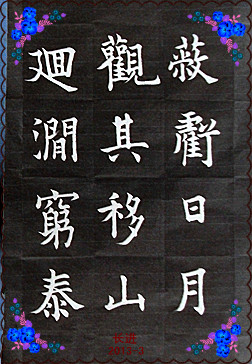 蔽虧日月
觀其移山
迴澗窮泰